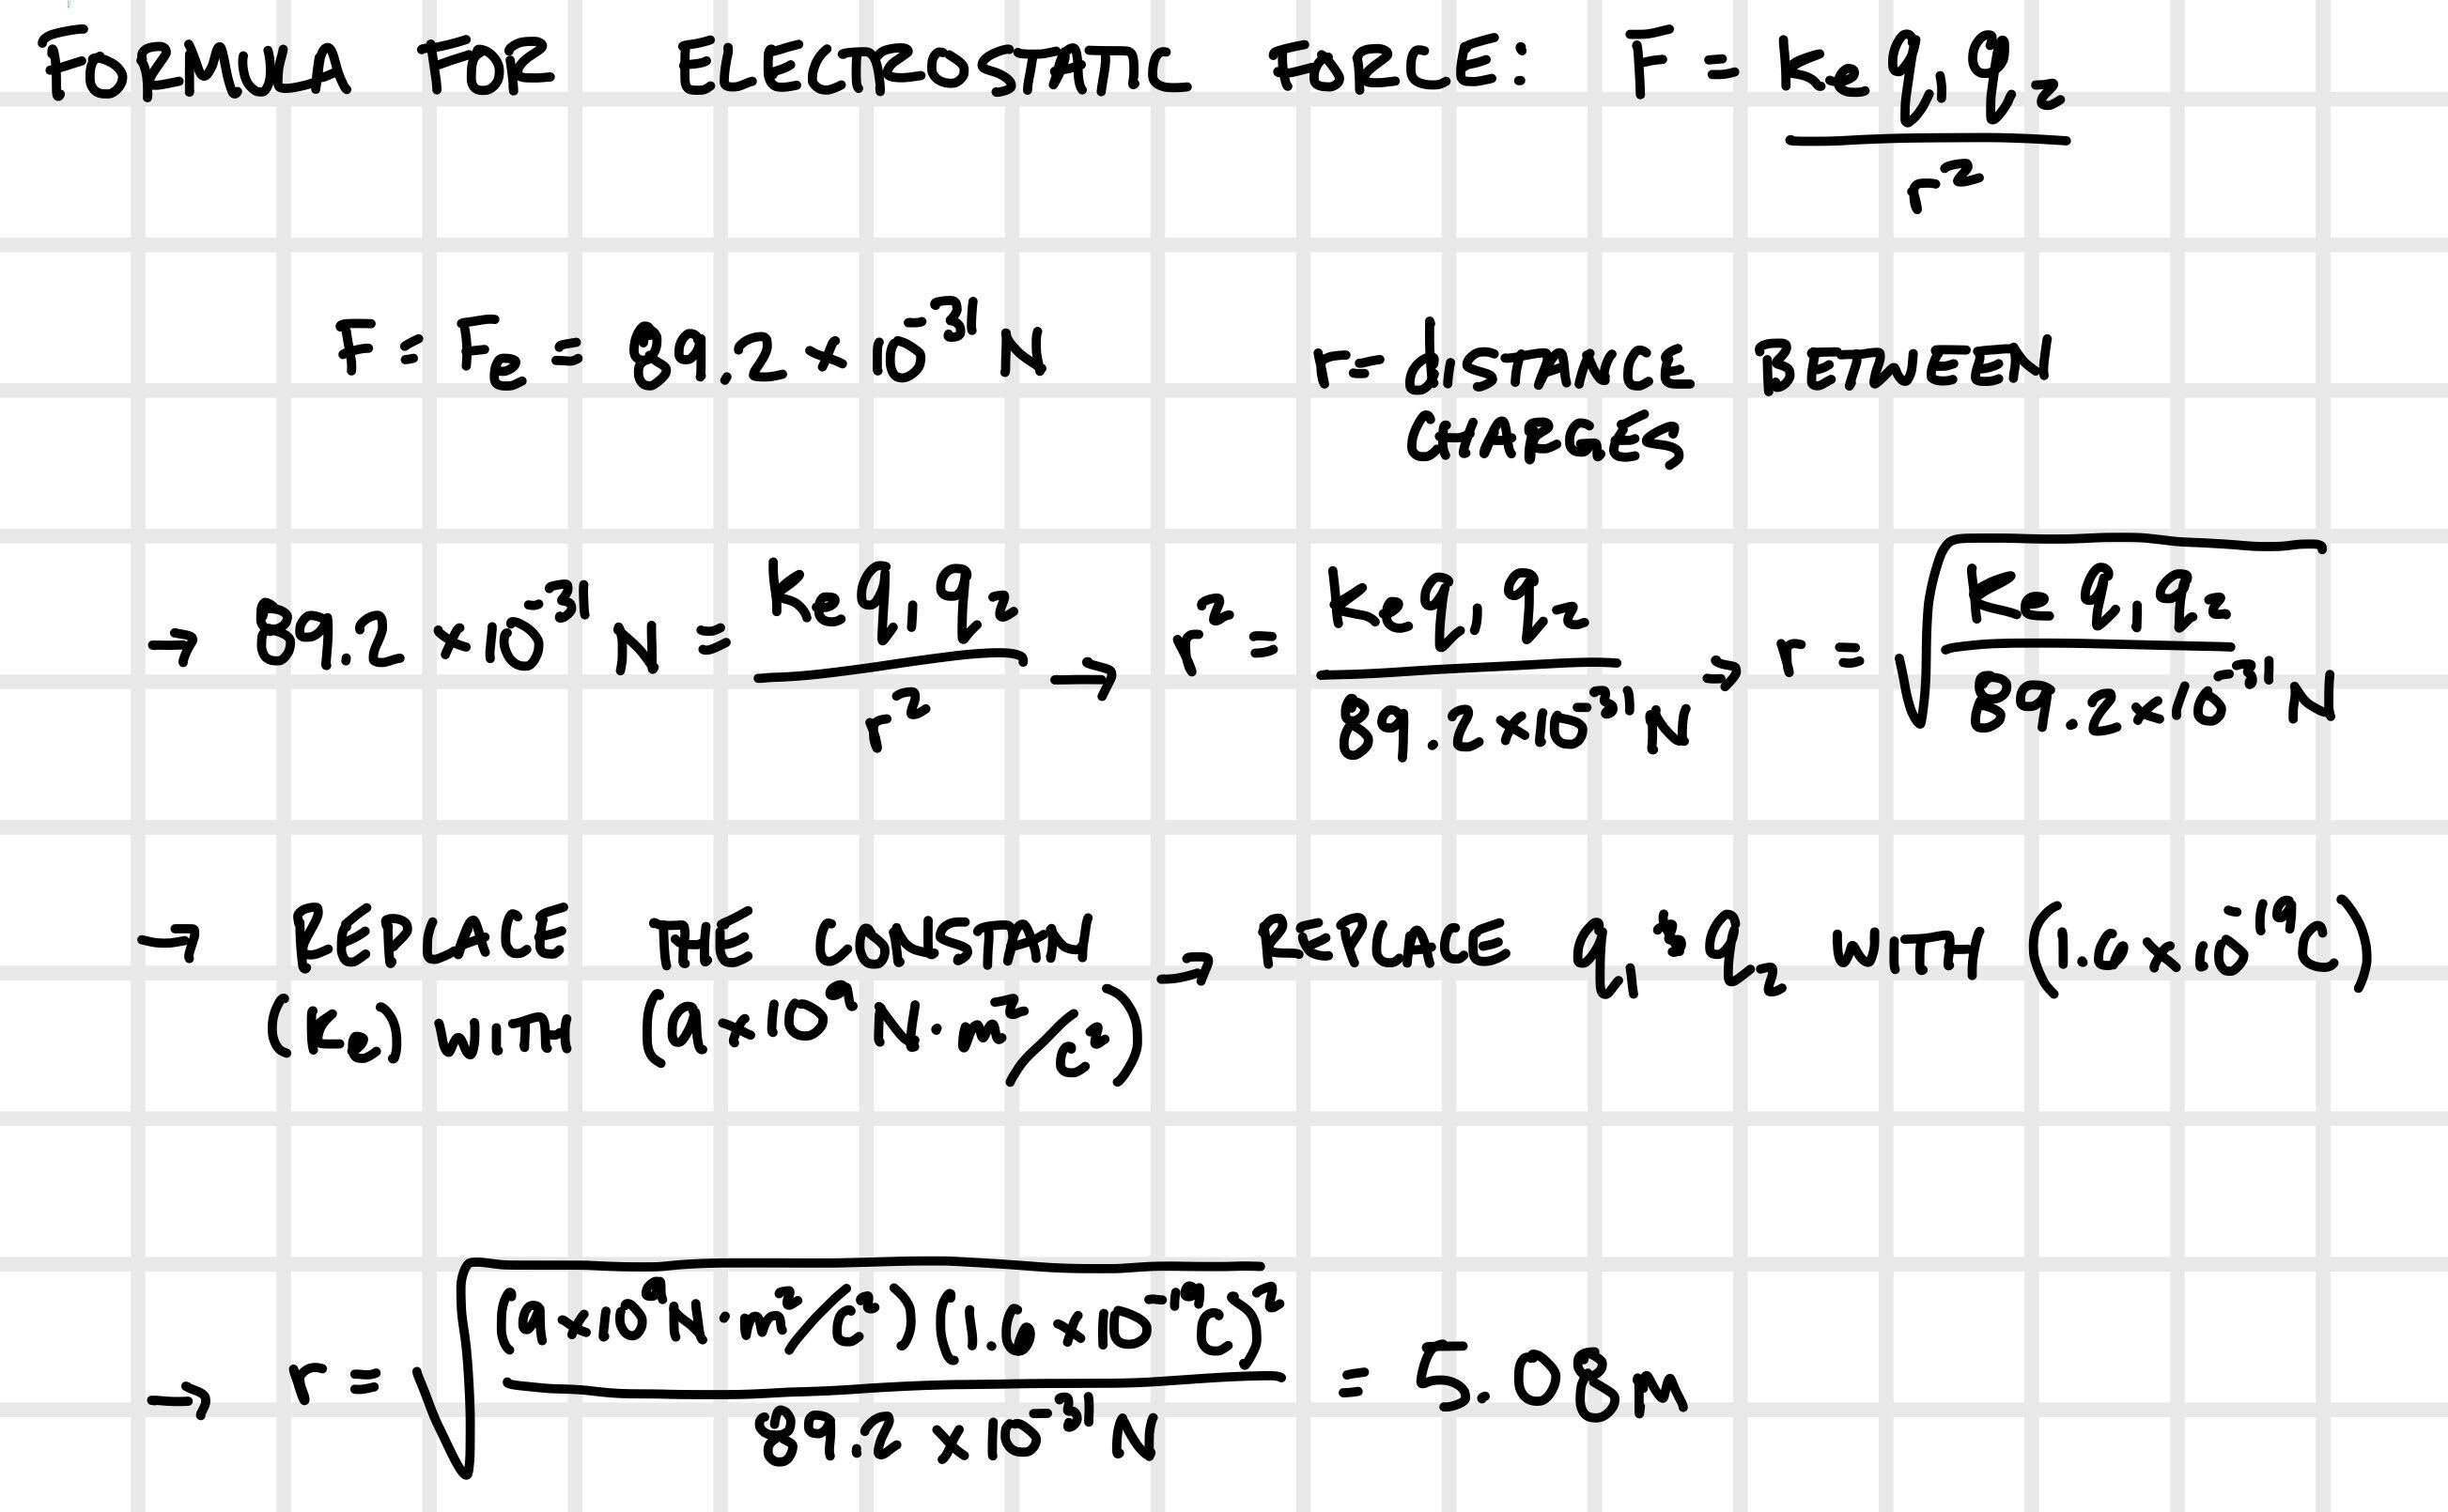 FORMULA FOR ELECTROSTATIC FORCE: F = Ke q₁ q₂ / r²
F = Fe = 89.2 × 10⁻³¹ N r = dISTANCE BETWEEN
CHARGES
→ 89.2 × 10⁻³¹ N = Ke q₁ q₂ / r² → r² = Ke q₁ q₂ / 89.2 × 10⁻³¹ N → r = √(Ke q₁ q₂ / 89.2 × 10⁻³¹ N)
→ REPLACE THE CONSTAN → REPLACE q₁ & q₂ WITH (1.6 × 10⁻¹⁹ C)
(Ke) WITH (9 × 10⁹ N·m²/C²)
→ r = √((9 × 10⁹ N·m²/C²) (1.6 × 10⁻¹⁹ C)² / 89.2 × 10⁻³¹ N) = 5.08 m